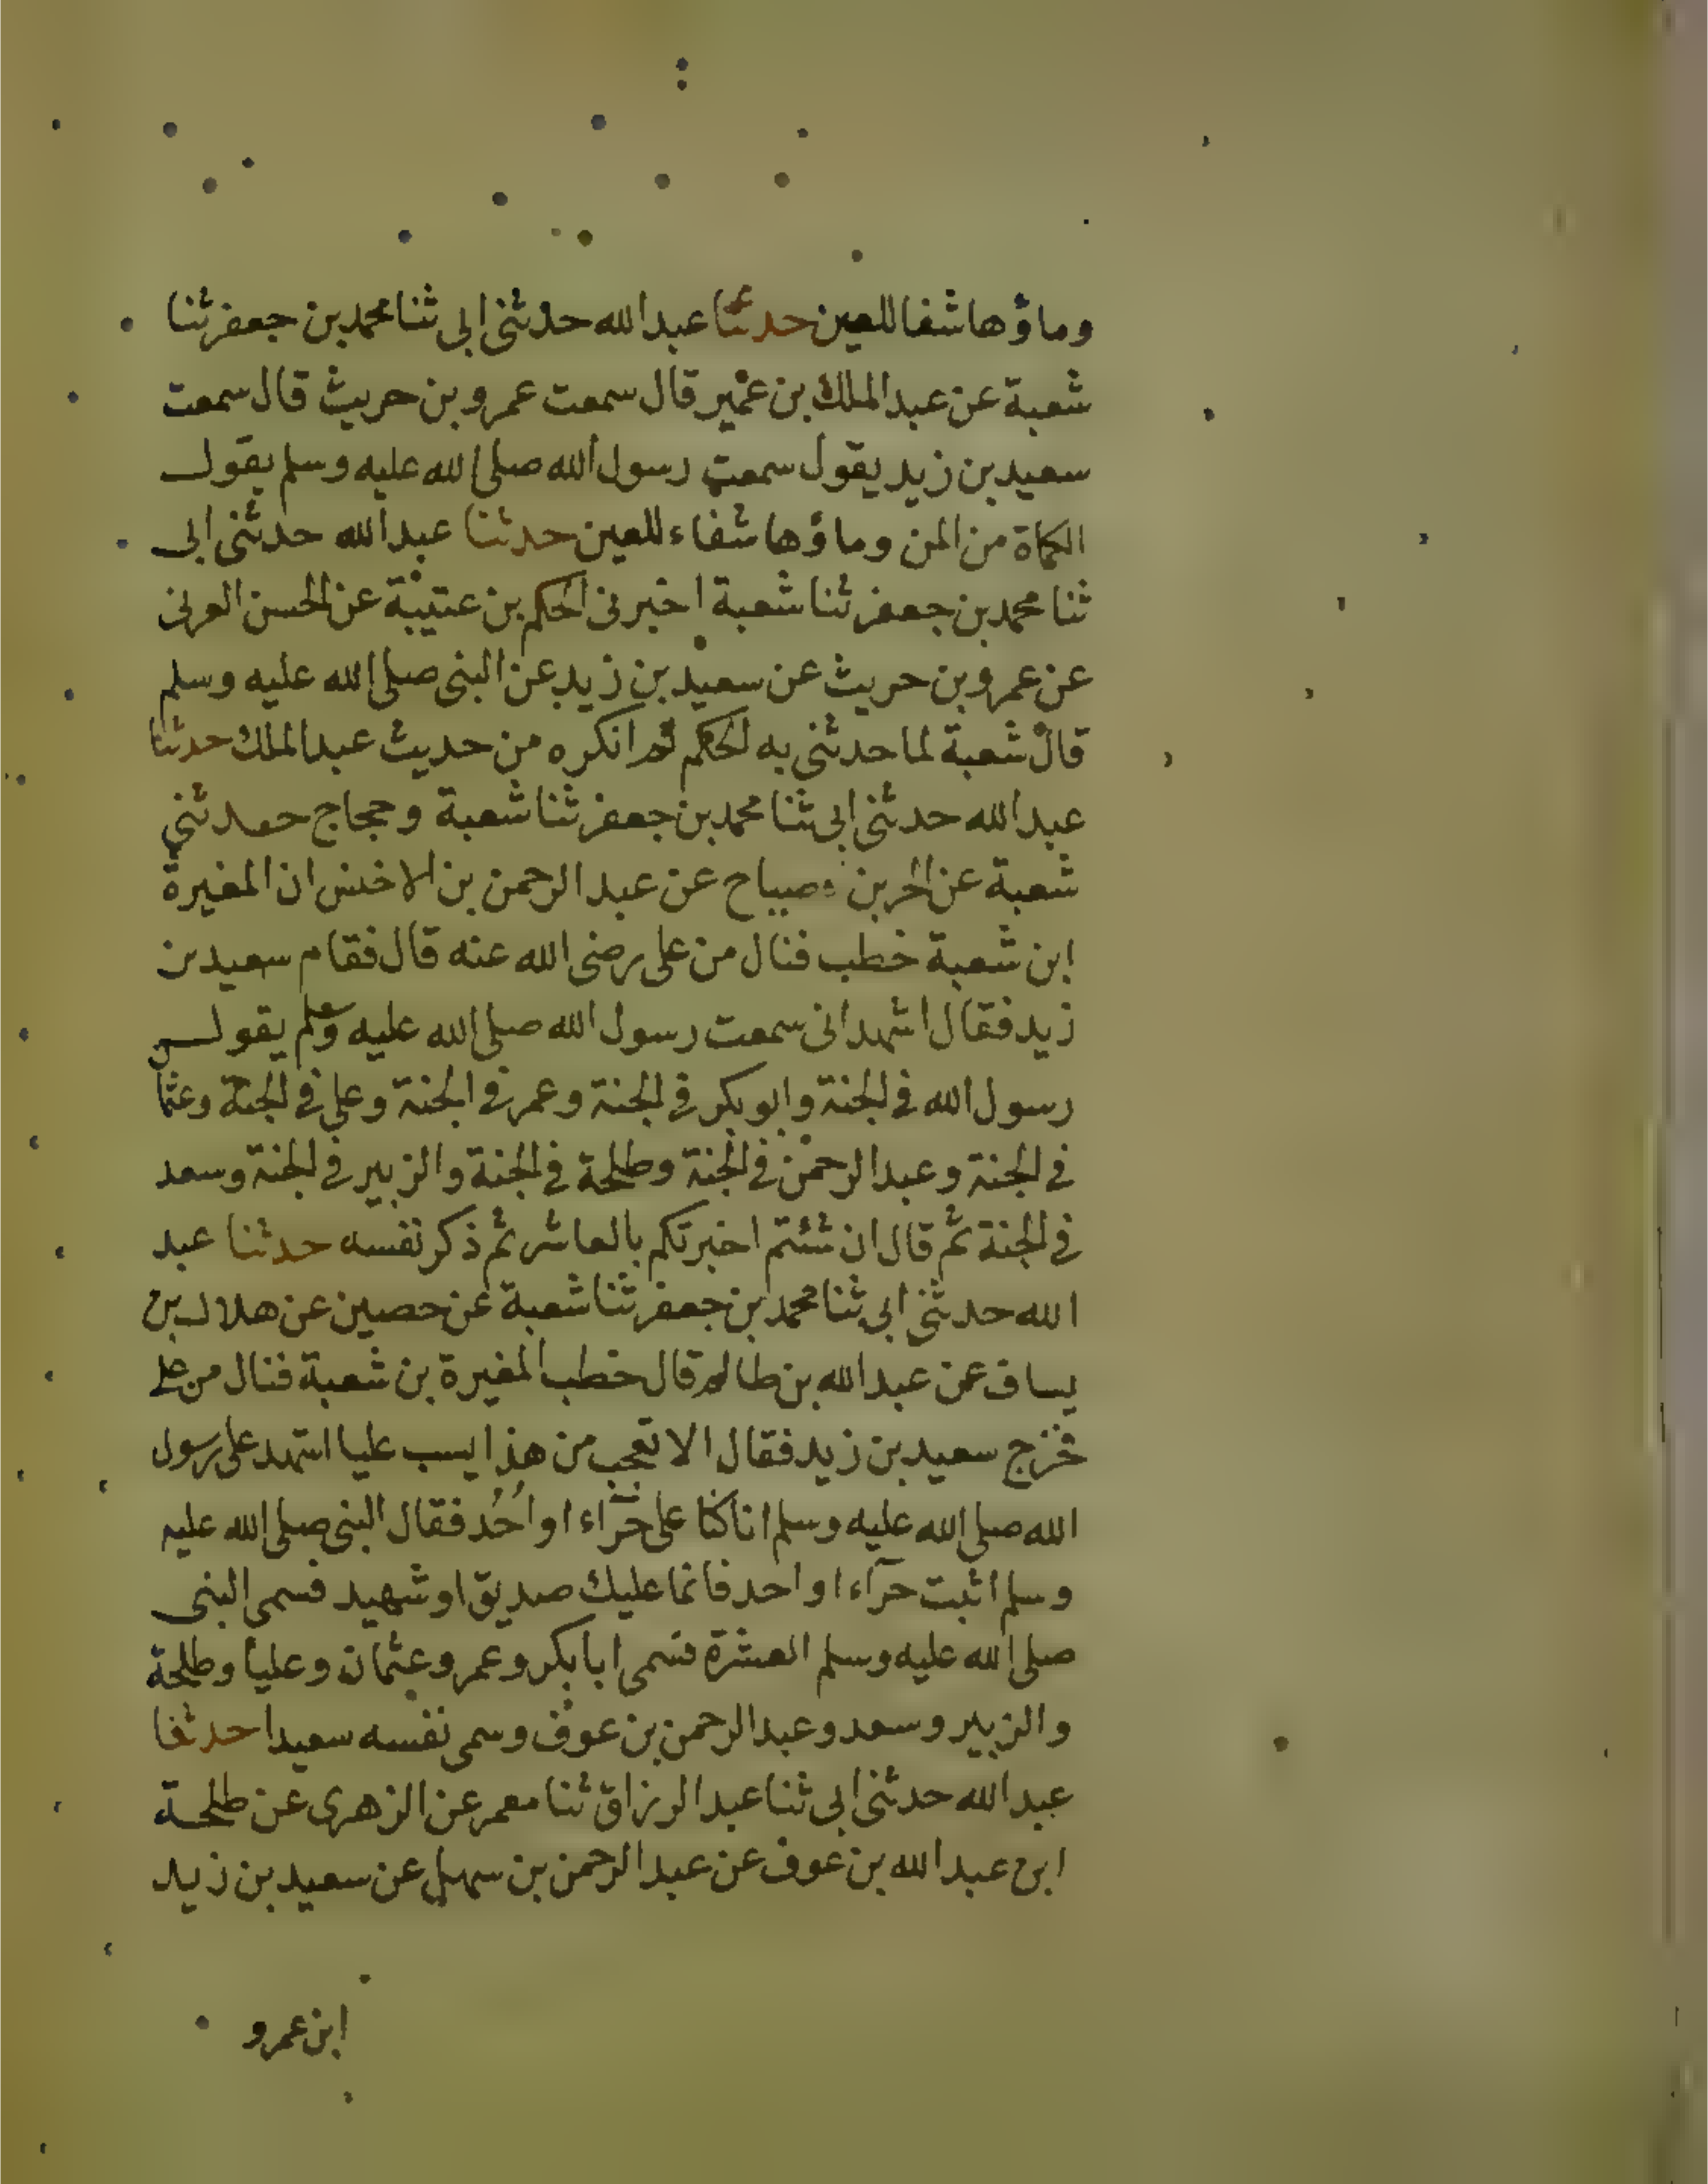 وماؤها شفا للعين حدثنا عبد الله حدثنى ابى ثنا محمد بن جعفر ثنا
شعبة عن عبد الملك بن عمير قال سمعت عمرو بن حريث قال سمعت
سعيد بن زيد يقول سمعت رسول الله صلى الله عليه وسلم يقول
الكماة من المن وماؤها شفاء للعين حدثنا عبد الله حدثنى ابى
ثنا محمد بن جعفر ثنا شعبة اخبرنى الحكم بن عتيبة عن الحسن العرنى
عن عمرو بن حريث عن سعيد بن زيد عن النبى صلى الله عليه وسلم
قال شعبة لما حدثنى به الحكم لم انكره من حديث عبد الملك حدثنا
عبد الله حدثنى ابى ثنا محمد بن جعفر ثنا شعبة وحجاج حدثنى
شعبة عن الحر بن صباح عن عبد الرحمن بن الاخنس ان المغيرة
ابن شعبة خطب فنال من على رضى الله عنه قال فقام سعيد بن
زيد فقال اشهد انى سمعت رسول الله صلى الله عليه وسلم يقول
رسول الله فى الجنة وابو بكر فى الجنة وعمر فى الجنة وعلى فى الجنة وعثما
فى الجنة وعبد الرحمن فى الجنة وطلحة فى الجنة والزبير فى الجنة وسعد
فى الجنة ثم قال ان شئتم اخبرتكم بالعاشر ثم ذكر نفسه حدثنا عبد
الله حدثنى ابى ثنا محمد بن جعفر ثنا شعبة عن حصين عن هلال بن
يساف عن عبد الله بن ظالم قال خطب المغيرة بن شعبة فنال من على
فخرج سعيد بن زيد فقال الا تعجب من هذا يسب عليا اشهد على رسول
الله صلى الله عليه وسلم انا كنا على حرآء او احُد فقال النبى صلى الله عليه
وسلم اثبت حرآء او احد فانما عليك صديق او شهيد فسمى النبى
صلى الله عليه وسلم العشرة فسمى ابا بكر وعمر وعثمان وعليا وطلحة
والزبير وسعد وعبد الرحمن بن عوف وسمى نفسه سعيدا حدثنا
عبد الله حدثنى ابى ثنا عبد الرزاق ثنا معمر عن الزهرى عن طلحة
ابن عبد الله بن عوف عن عبد الرحمن بن سهل عن سعيد بن زيد
ابن عمرو